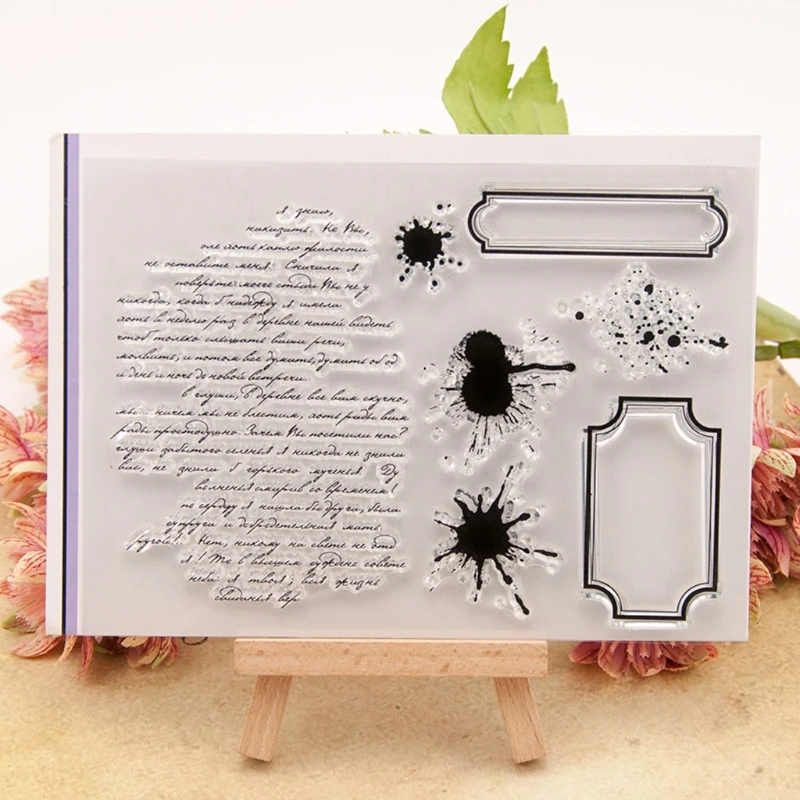 я знаю,
наказать. Но Вы,
оле хоть каплю жалости
не оставите меня. Сначала я
поверьте: моего стыда Вы не у
никогда, когда б надежду я имела
хоть в неделю раз в деревне нашей видеть
чтоб только слышать ваши речи,
молвить, и потом все думать, думать об од
и день и ночь до новой встречи.
в глуши, в деревне все вам скучно,
мы ничем мы не блестим, хоть рады вам
рады простодушно. Зачем Вы посетили нас?
глуши забытого селенья я никогда не знала
вас, не знала б горького мученья. Ду
волненья смирив со временем!
по сердцу я нашла бы друга, была
супруга и добродетельная мать.
другой! Нет, никому на свете не отд
я! То в вышнем суждено совете
неба: я твоя; вся жизнь
свиданья вер